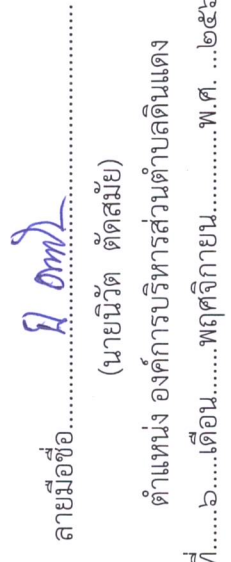 ลายมือชื่อ
(นายนิวัต ตัดสมัย)
ตำแหน่ง องค์การบริหารส่วนตำบลดินแดง
ที่......๖.....เดือน.......พฤศจิกายน............พ.ศ. ...๒๕๖